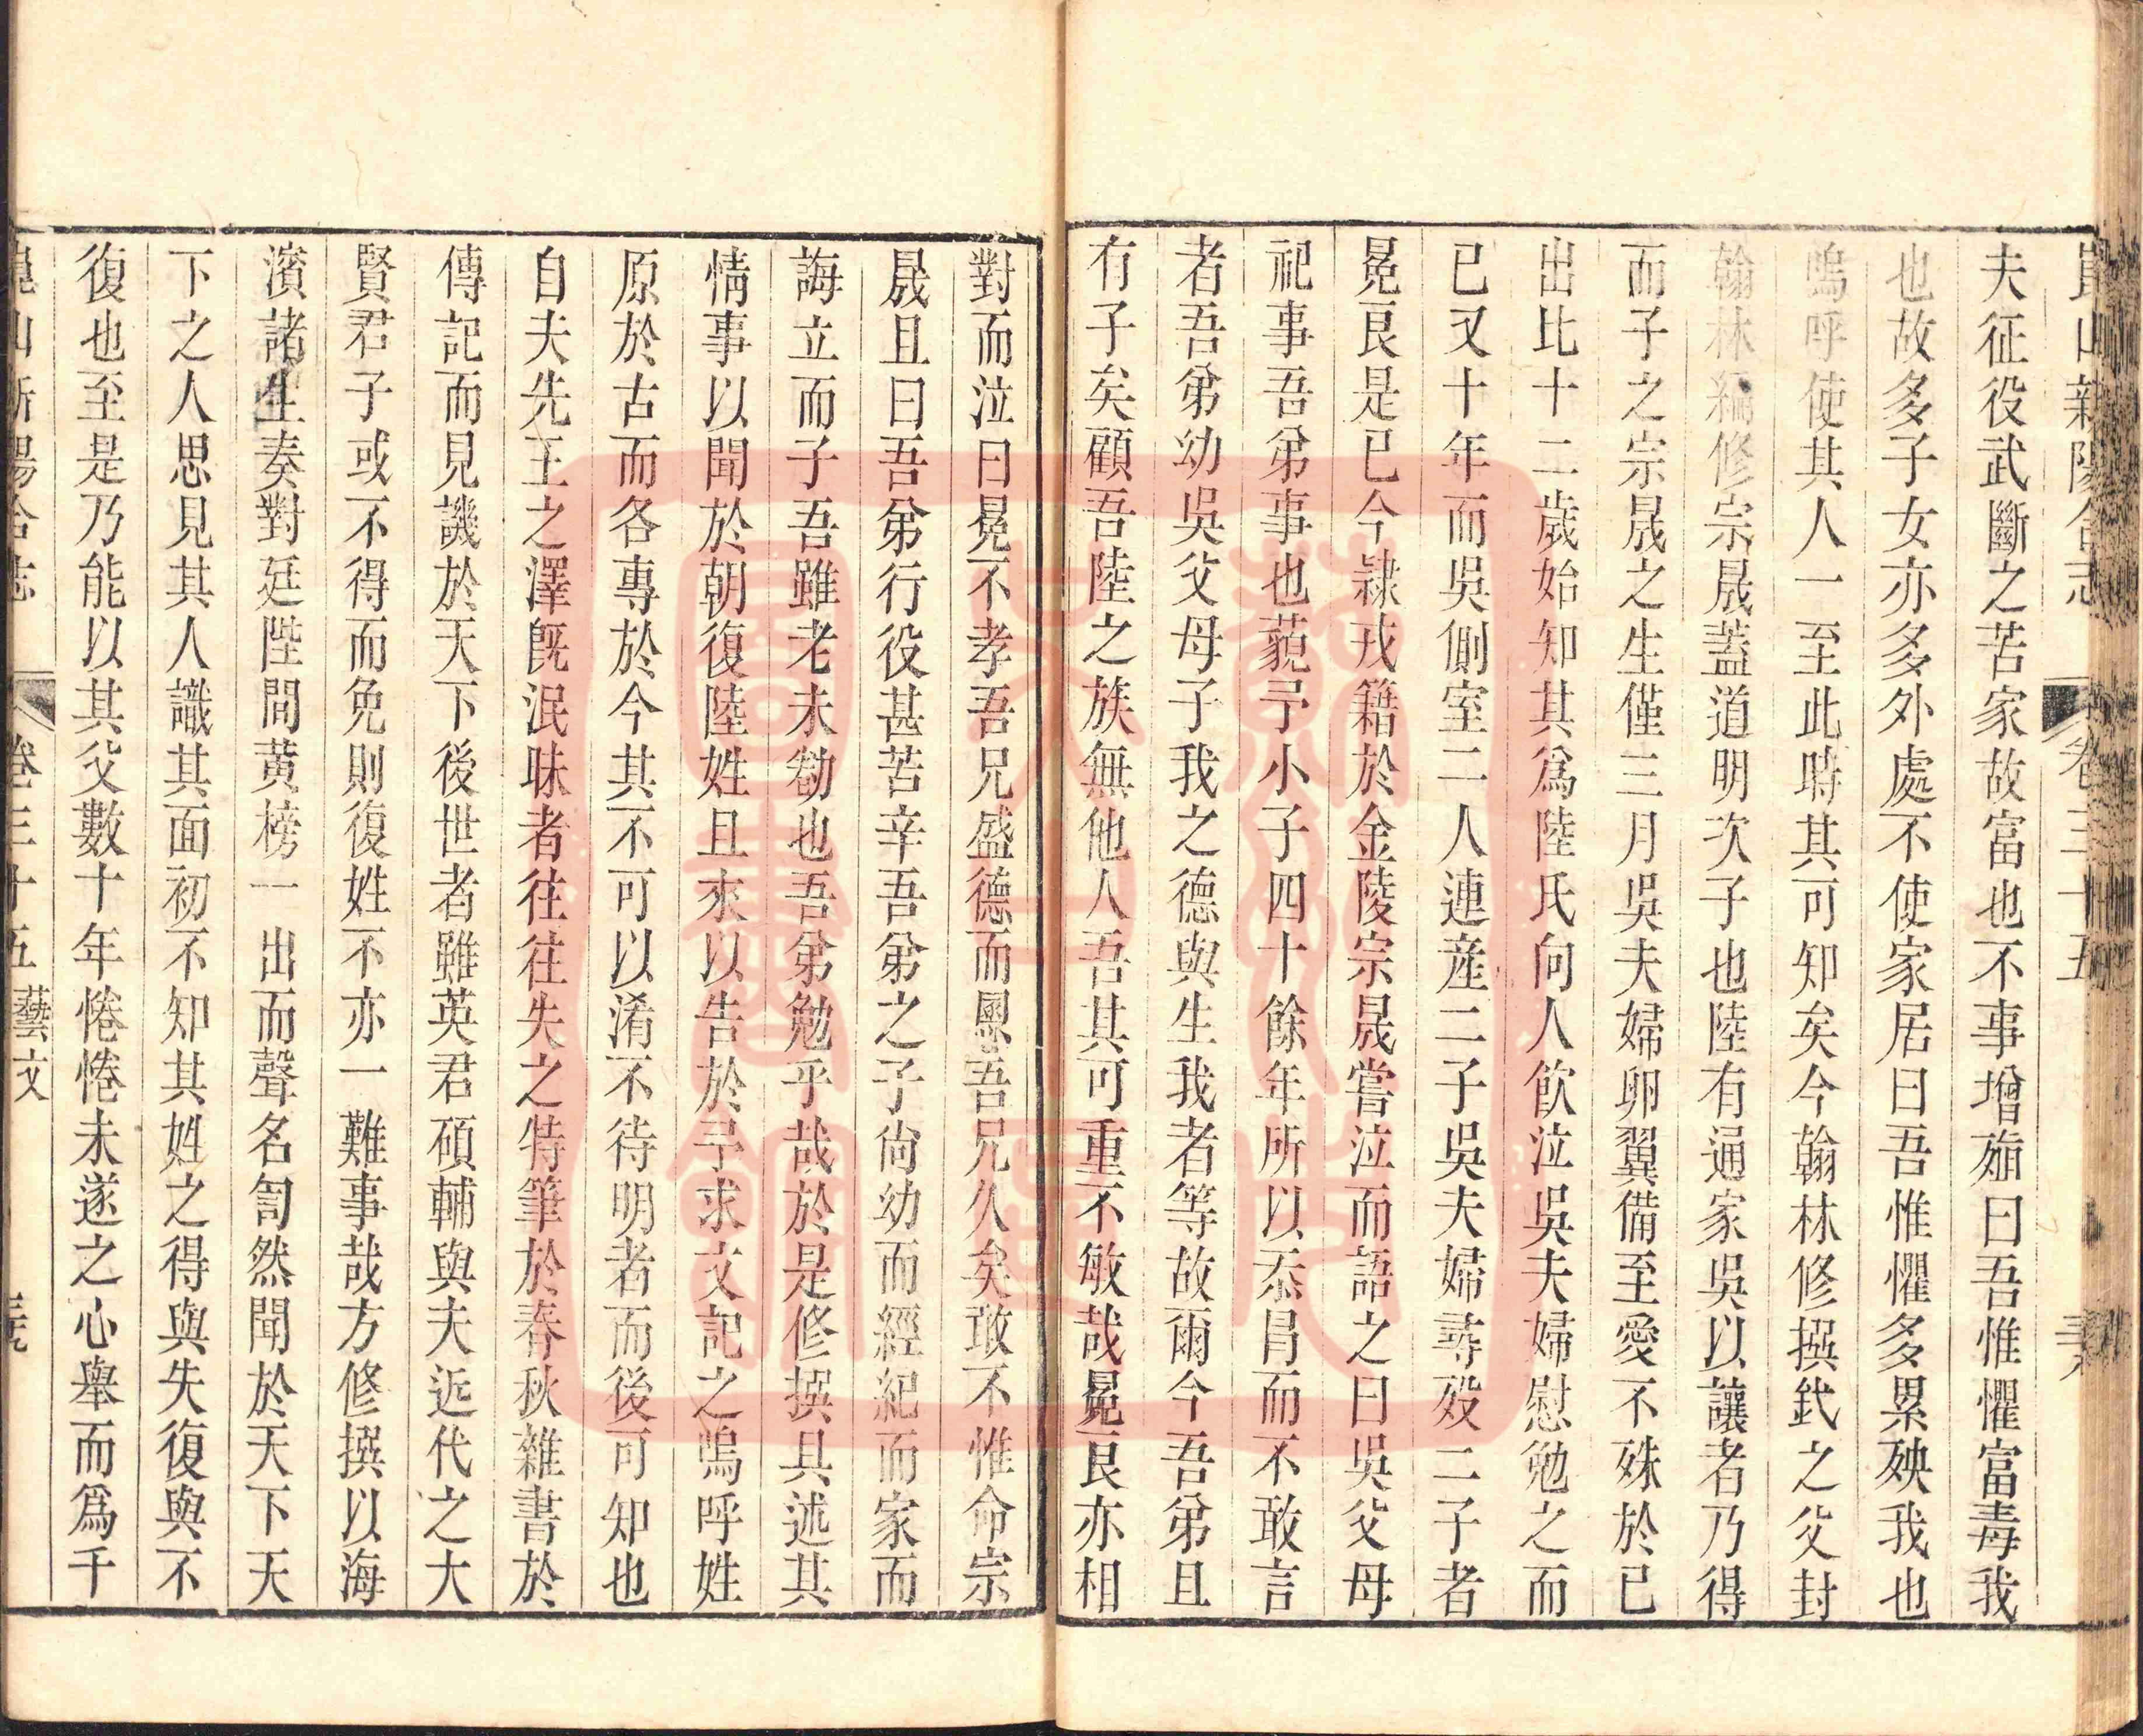 崑山新陽合志
卷三十五
三六
夫征役武斷之苦家故富也不事增殖曰吾惟懼富毒我
也故多子女亦多外處不使家居曰吾惟懼多累殃我也
嗚呼使其人一至此時其可知矣今翰林修撰釴之父封
翰林編修宗晟蓋道明次子也陸有通家吳以讓者乃得
而子之宗晟之生僅三月吳夫婦卵翼備至愛不殊於已
出比十二歲始知其爲陸氏向人飮泣吳夫婦慰勉之而
已又十年而吳側室二人連産二子吳夫婦尋歿二子者
冕良是已今隷戎籍於金陵宗晟嘗泣而語之曰吳父母
祀事吾弟事也藐予小子四十餘年所以忝冐而不敢言
者吾弟幼吳父母子我之德與生我者等故爾今吾弟且
有子矣顧吾陸之族無他人吾其可重不敏哉冕良亦相
對而泣曰冕不孝吾兄盛德而慁吾兄久矣敢不惟命宗
晟且曰吾弟行役甚苦辛吾弟之子尙幼而經紀而家而
誨立而子吾雖老未勌也吾弟勉乎哉於是修撰具述其
情事以聞於朝復陸姓且來以吿於予求文記之嗚呼姓
原於古而各專於今其不可以淆不待明者而後可知也
自夫先王之澤旣泯昧者往往失之特筆於春秋雜書於
傳記而見譏於天下後世者雖英君碩輔與夫近代之大
賢君子或不得而免則復姓不亦一難事哉方修撰以海
濱諸生奏對廷陛間黄榜一出而聲名訇然聞於天下天
下之人思見其人識其面初不知其姓之得與失復與不
復也至是乃能以其父數十年惓惓未遂之心舉而爲千
崑山新陽合志
卷三十五藝文